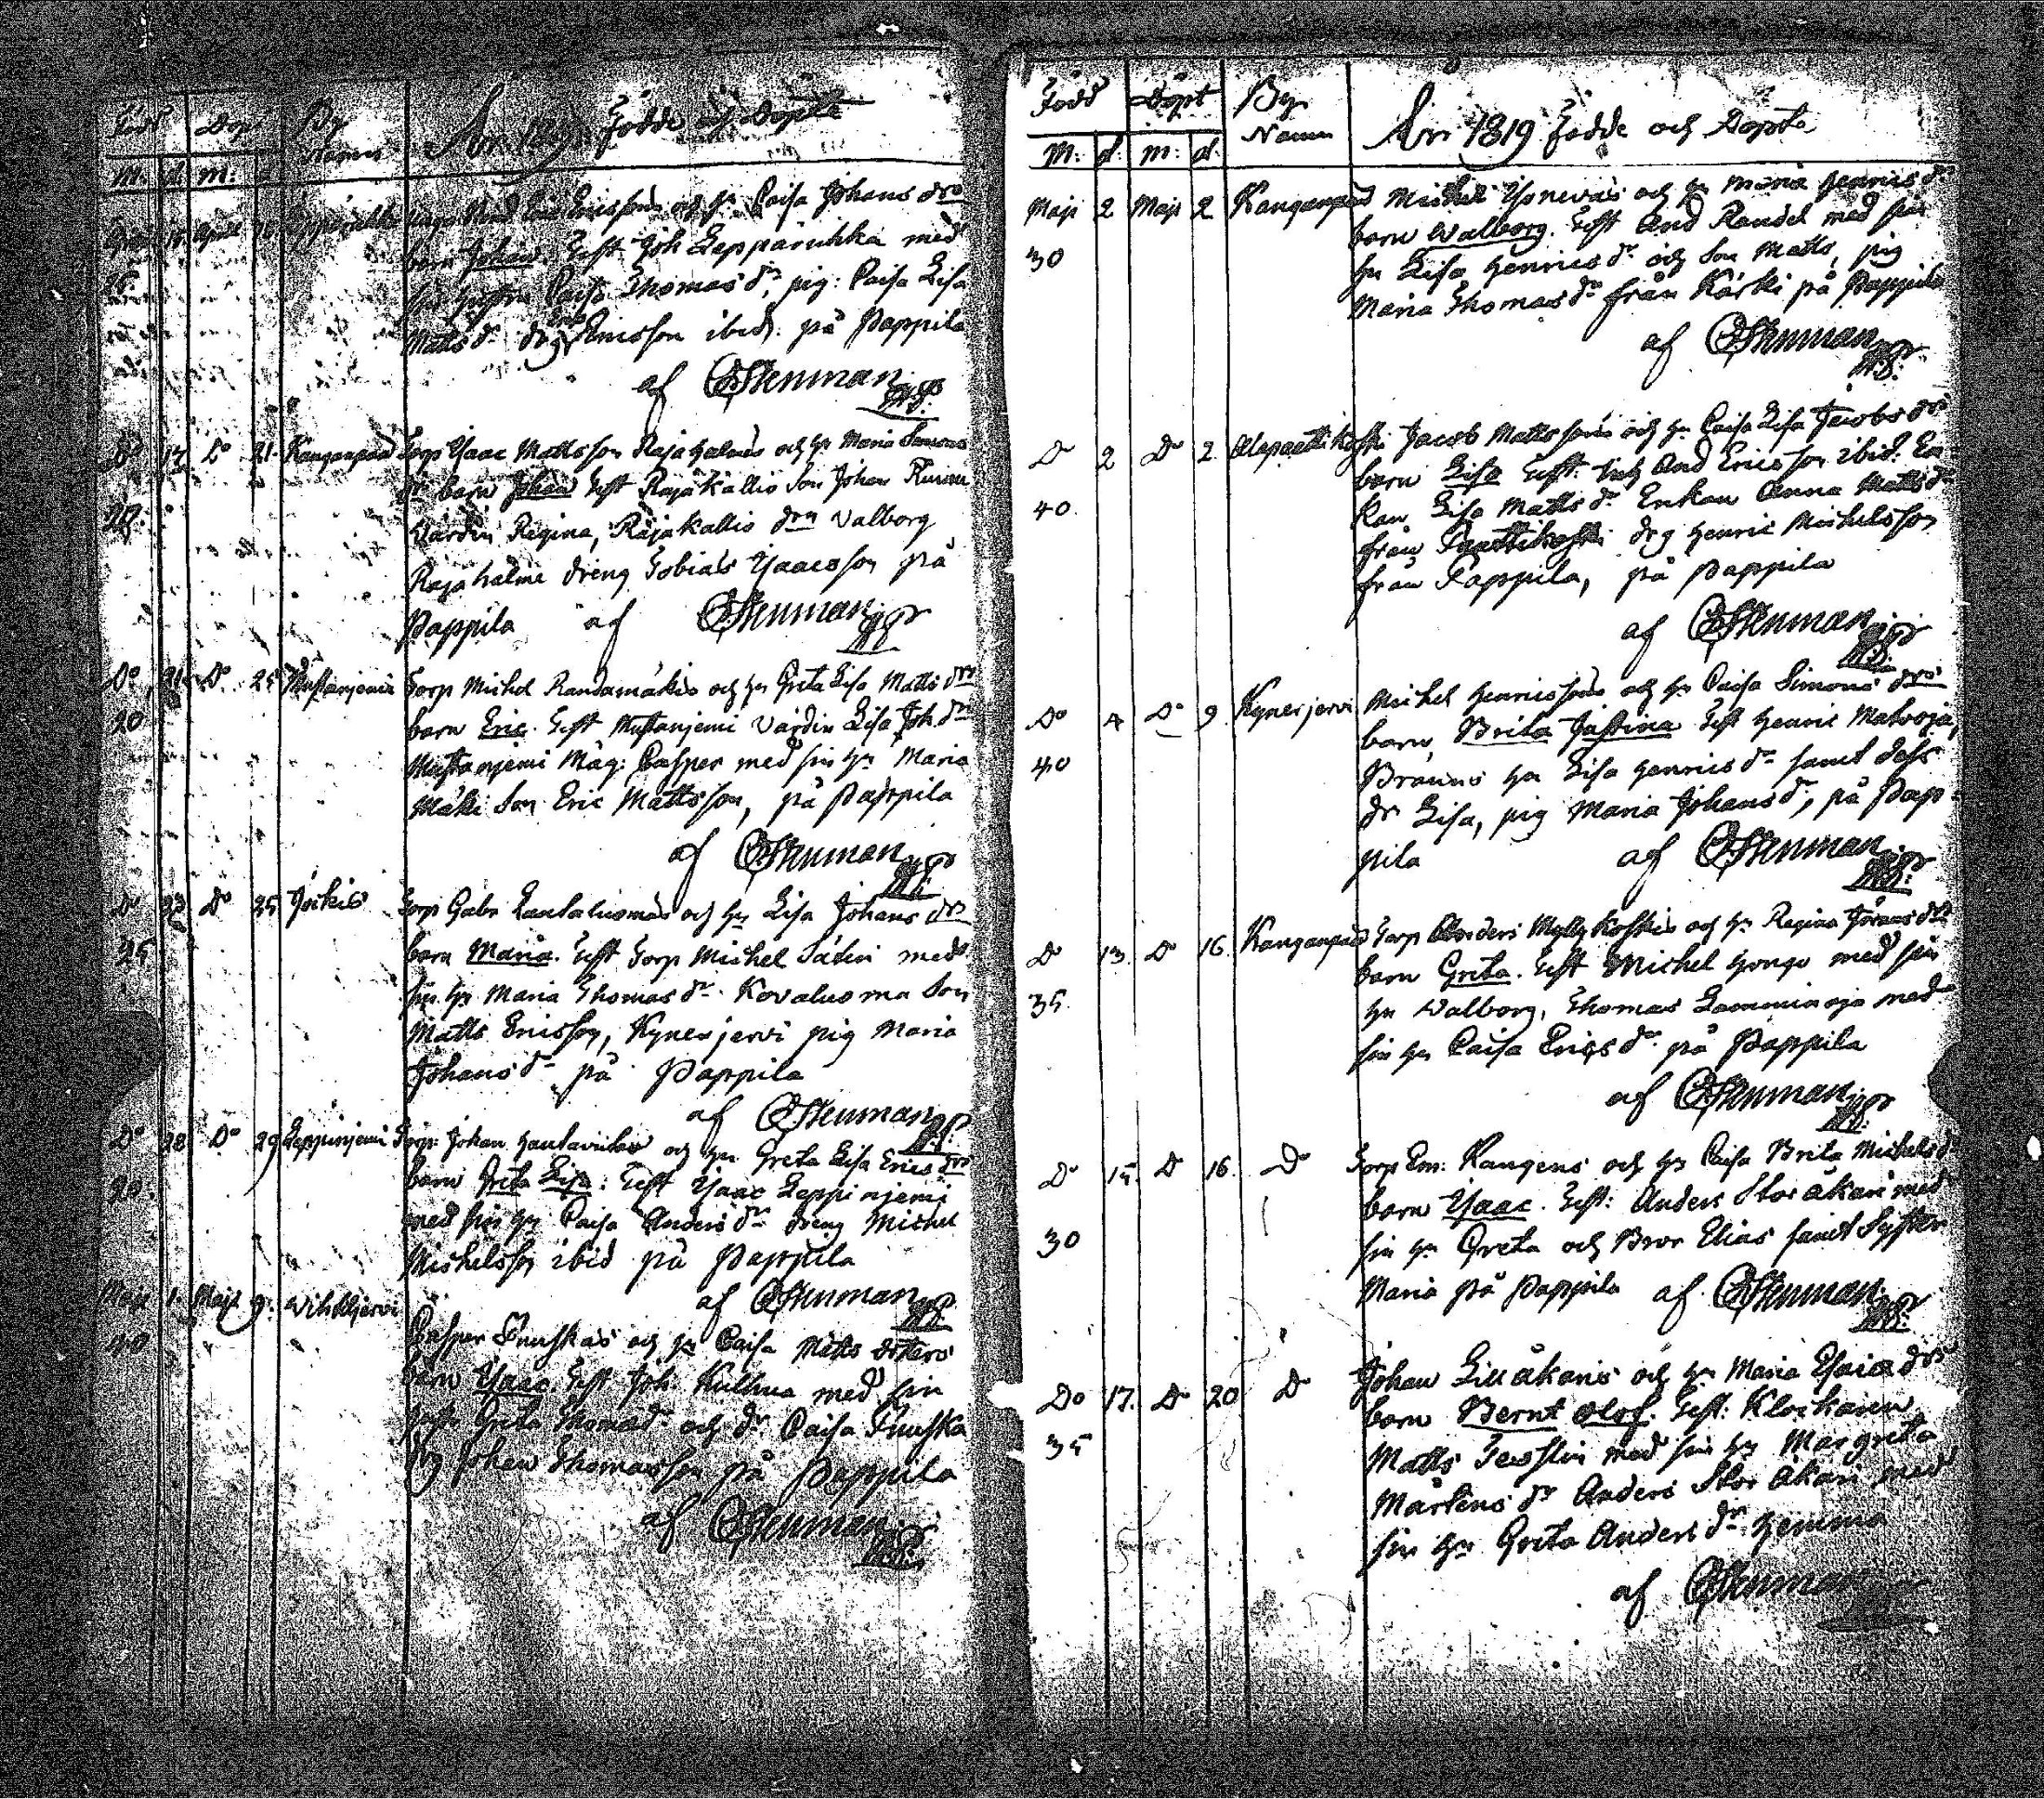 Född Döpt By Namn
An 1819 Födde och Döpte
M: d. m:
April April Lepparuhka Erissons och hu Caisa Johans drs
barn Johan. Test Joh Lepparuhka med
sin hustru Caisa Thomas dr, pig: Caisa Lisa
Matts dr drg Ericsson ibid. på Pappila
af Stenman
Do 17 Do 21. Kanganpää Torp Isaac Mattsson Rajahalmes och hu Maria Simons
dr. barn Johan Test Räjäkallio Son Johan
27. Värdin Regina, Räjäkallio drn Valborg
Rajahalme dreng Tobias Isaacsson på
Pappila af Stenman
Do 21 Do 25 Mustanjemi Torp Michel Randamäkis och hu Greta Lisa Matts drs
20 barn Eric. Test Mustanjemi Värdin Lisa Joh. dr
Mustanjemi Måg: Casper med sin hu Maria
Mäki Son Eric Mattsson, på Pappila
af Stenman
Do 23 Do 25 Jockis Torp Gabr Rautaluomas och hu Lisa Johans drs
25 barn Maria. Test Torp Michel Säteri med
sin hu Maria Thomas dr. Kovaluoma Son
Matts Ericsson, Kynerjervi pig Maria
Johans dr på Pappila
af Stenman
Do 28 Do 29 Leppinjemi Torp: Johan Hautaviitas och hu Greta Lisa Erics drs
20. barn Greta Lisa: Test Isaac Leppinjemi
med sin hu Caisa Anders dr dreng Michel
Michelsson ibid på Pappila
af Stenman
Maji 1. Maji 9. Vihtljervi
40 Casper Finuskas och hu Caisa Matts dotters
barn Isaac. Test Joh. Kullma med sin
hustr Greta Thomas dr och dr. Caisa Finuska
drg Johan Thomasson på Pappila
af Stenman
Född Döpt By Namn
An 1819 Födde och Döpta
M: d: m: d.
Maji 2 Maji 2 Kanganpää Michel Isonevas och hu Maria Henrics dr
30 barn Walborg. Test And Randel med sin
hu Lisa Henrics dr och Son Matts, pig
Maria Thomas dr från Kärki på Pappila
af Stenman
Do 2 Do 2 Alapaettikoski Jacob Mattssons och hu Caisa Lisa Jacobs drs
barn Lisa Test: And Ericsson ibid: En
40. kan Lisa Matts dr Enkan Anna Matts dr
från Paettikoski drg Henric Michelsson
från Pappila, på Pappila
af Stenman
Do 4 Do 9 Kynerjervi Michel Henricssons och hu Caisa Simons drs
40 barn Brita Justina Test Henric Matvoja,
Bränns hu Lisa Henrics dr samt dess
dr Lisa, pig Maria Johans dr, på Pap-
pila af Stenman
Do 13. Do 16. Kanganpää Torp Anders Myllykoskis och hu Regina Jörans drs
35. barn Greta. Test Michel Hongo med sin
hu Walborg, Thomas Lamminoja med
sin hu Caisa Erics dr. på Pappila
af Stenman
Do 15. Do 16. Do Torp Em: Kangens och hu Caisa Brita Michels dr
barn Isaac. Test: Anders Storåkari med
30 sin hu Greta och Bror Elias samt Syster
Maria på Pappila af Stenman
Do 17. Do 20 Do Johan Lillåkaris och hu Maria Esaiæ drs
35 barn Bernt Olof. Test: Klockaren
Matts Forsslin med sin hu Margreta
Mårtens dr Anders Storåkari med
sin hu Greta Anders dr. Hemma
af Stenman